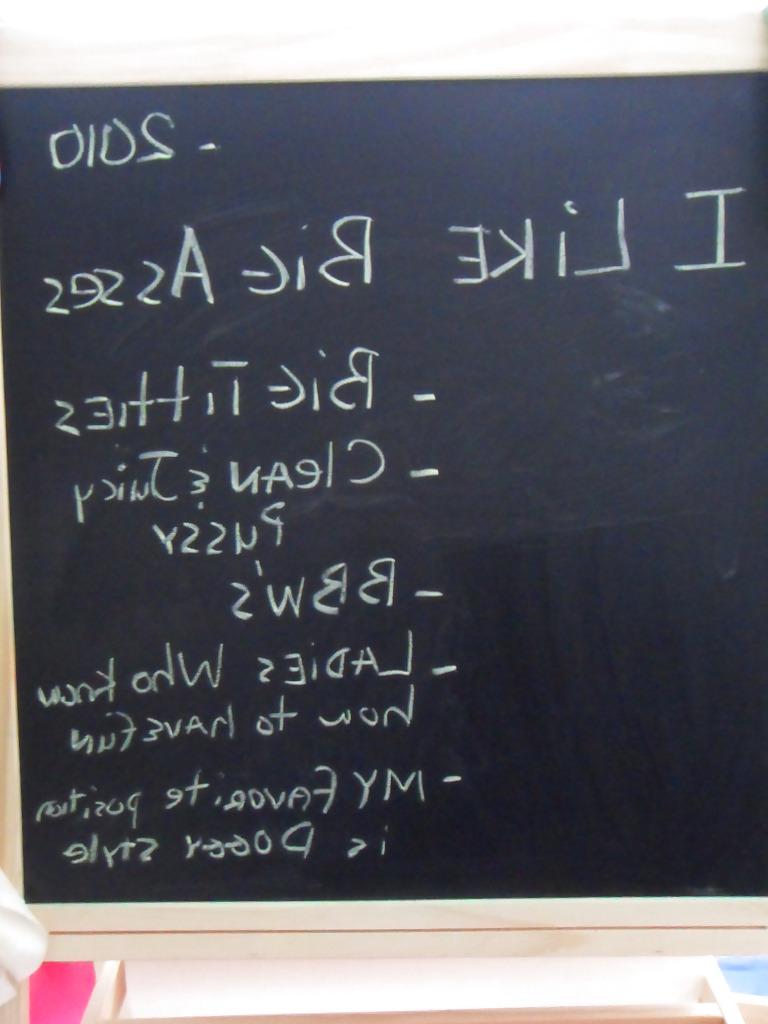 - 2010
I LiKE BiG Asses
- BiG TittiES
- CleAN & Juicy
Pussy
- BBW's
- LADiES Who know
how to hAVE fun
- MY FAVOrite position
is DOGGY style